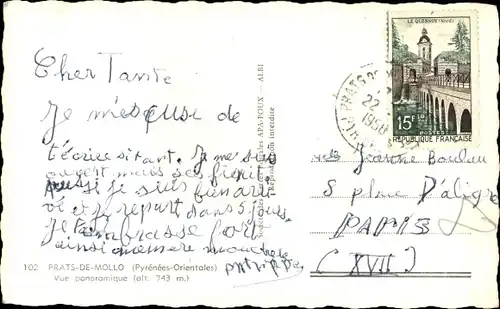 Cher Tante
Je m'escuse de
t'écrire si tart. Je me suis
je suis bien arri
vé et je repart dans 5 jours
Je t'embrasse fort
ainsi mémere
PATRICK
102 PRATS-DE-MOLLO (Pyrénées-Orientales)
Vue panoramique (alt. 743 m.)
APA-POUX - ALBI
Reproduction interdite
LE QUESNOY (Nord)
15F
POSTES
REPUBLIQUE FRANÇAISE
PRATS DE
22
Jeanne Boulan
5 place D'Aligre
PARIS
(XVII)